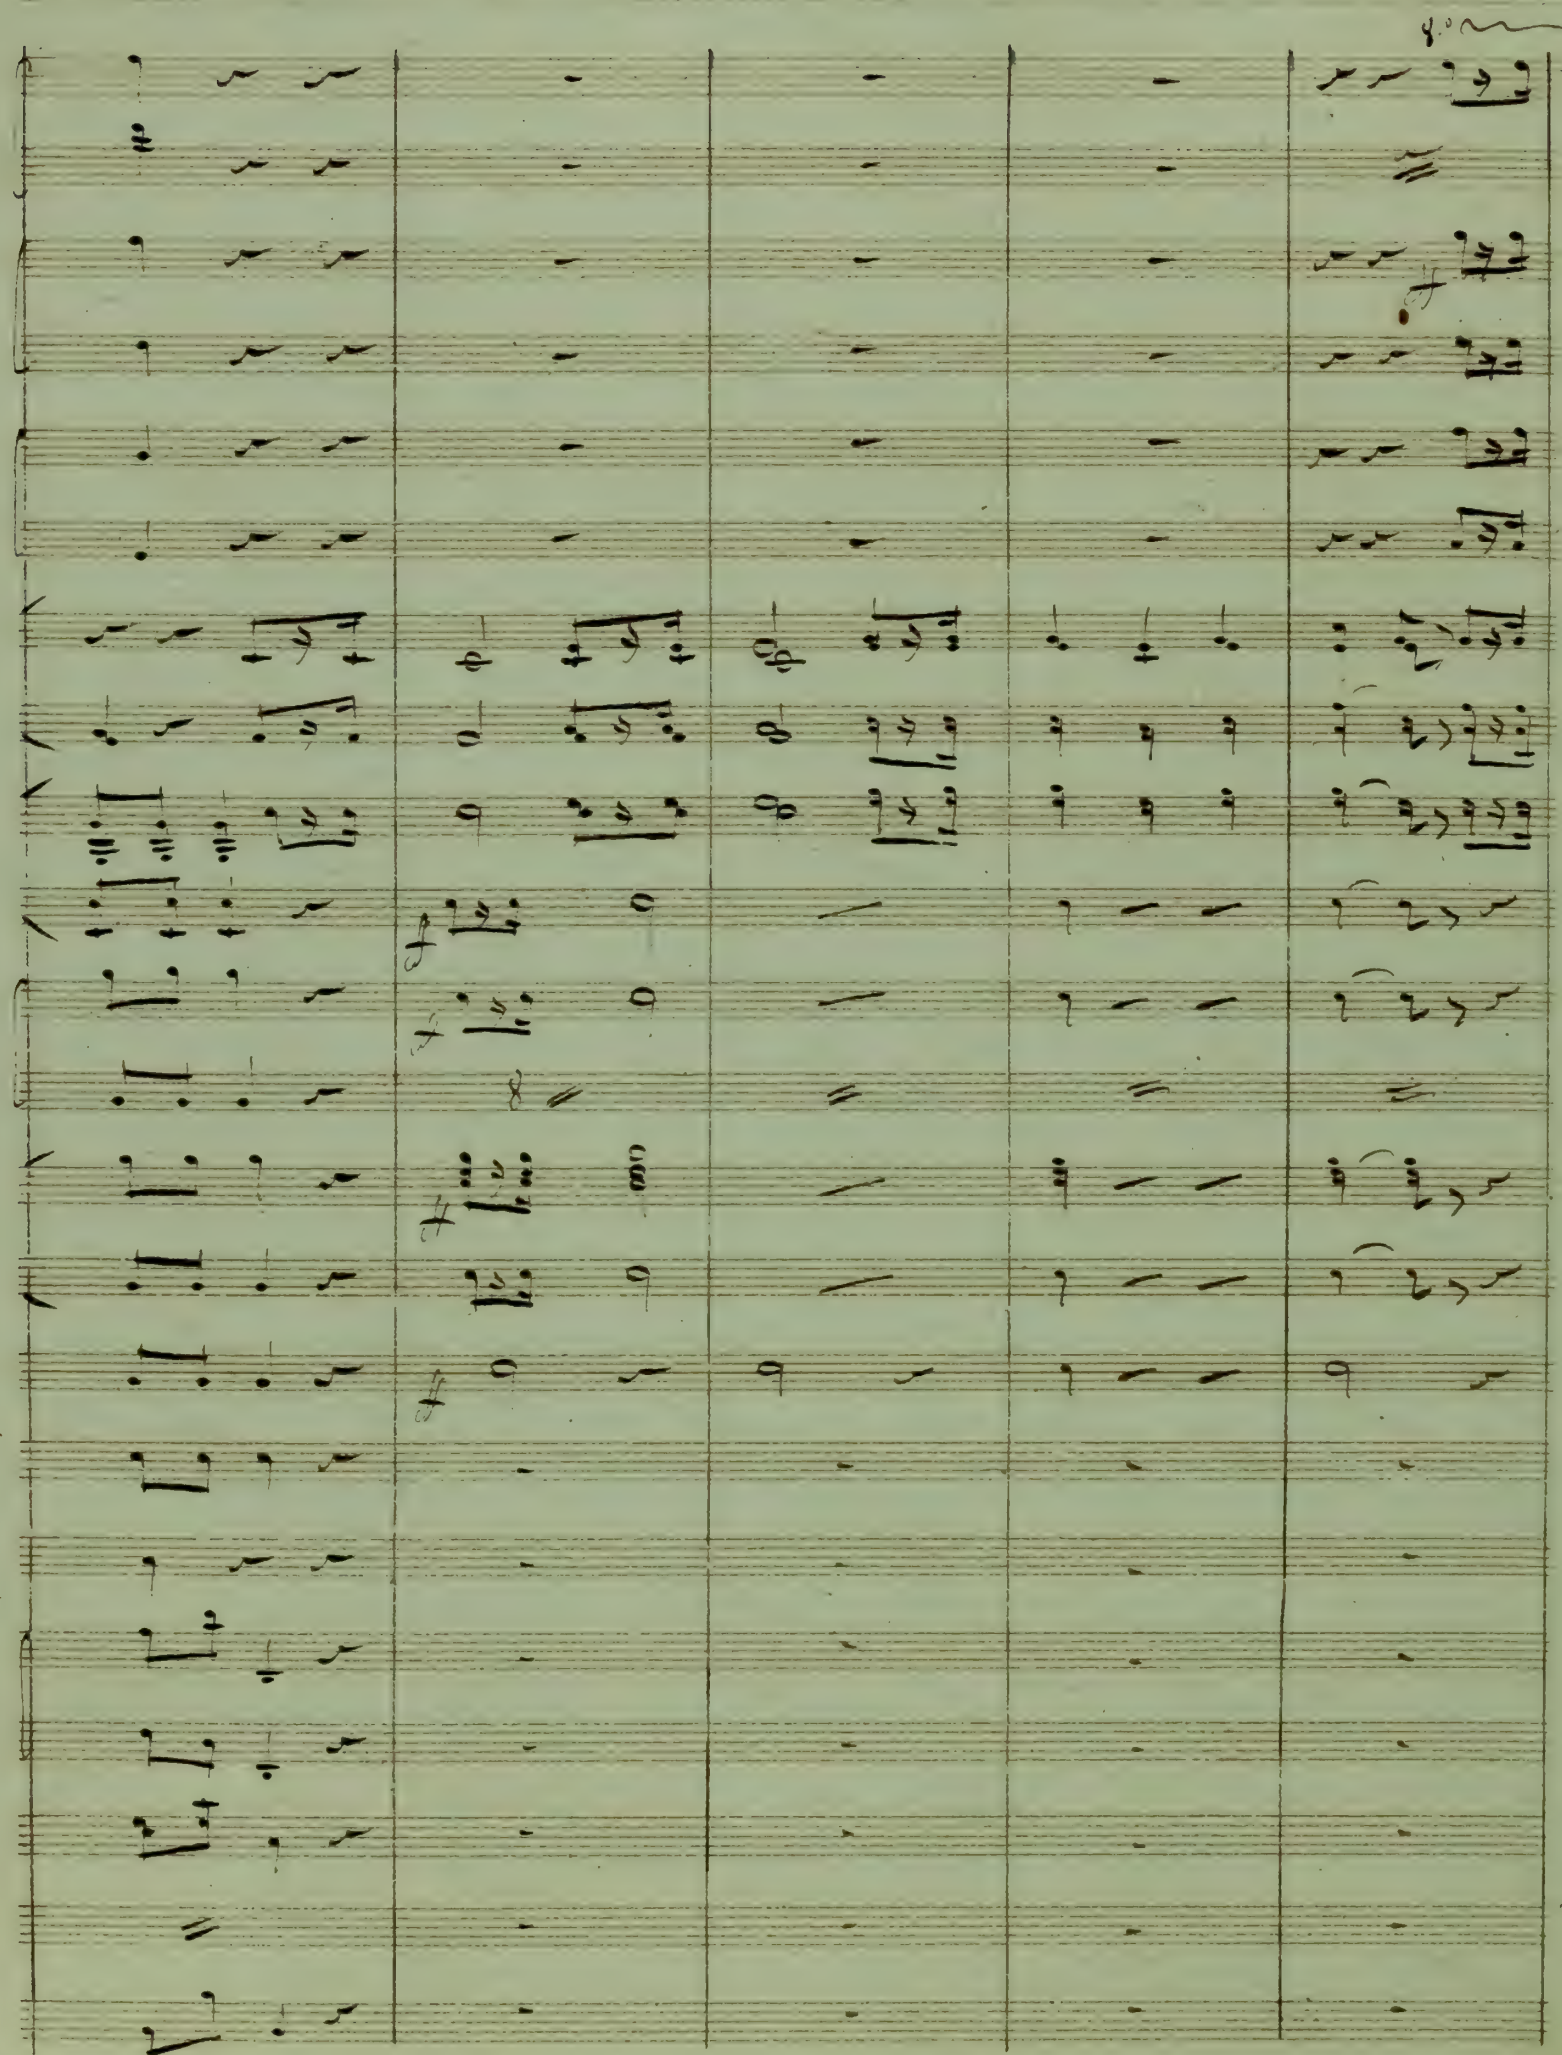 8.º
ff
ff
ff
8
ff
ff